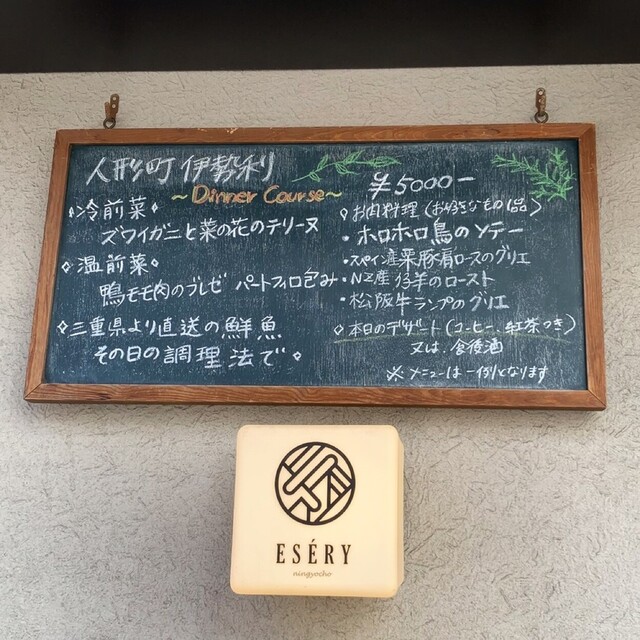 人形町 伊勢利
~Dinner Course~
◇冷前菜◇
ズワイガニと菜の花のテリーヌ
◇温前菜◇
鴨モモ肉のブレゼ パートフィロ包み
◇三重県より直送の鮮魚
その日の調理法で◇
¥5000-
◇お肉料理(お好きなもの1品)
・ホロホロ鳥のソテー
・スペイン産栗豚肩ロースのグリエ
・NZ産仔羊のロースト
・松阪牛ランプのグリエ
◇本日のデザート(コーヒー、紅茶つき)
又は、食後酒
※メニューは一例となります
ESÉRY
ningyocho